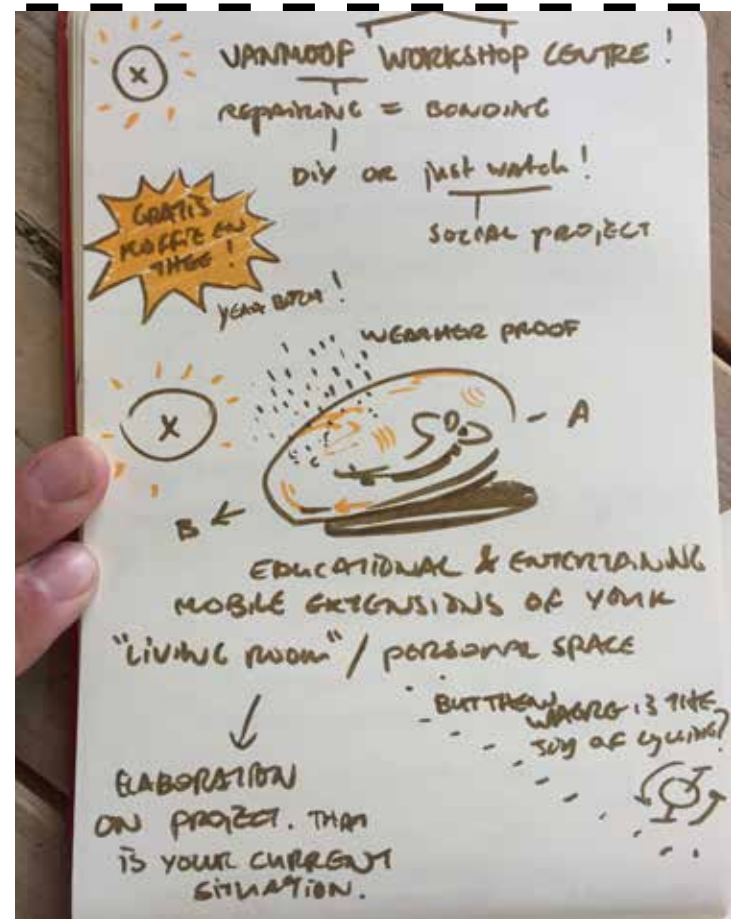 X
VANMOOF WORKSHOP CENTRE!
REPAIRING = BONDING
DIY OR just watch!
SOCIAL PROJECT
GRATIS
KOFFIE EN
THEE!
YEAH BITCH!
WEATHER PROOF
X
A
B
EDUCATIONAL & ENTERTAINING
MOBILE EXTENSIONS OF YOUR
"LIVING ROOM" / PERSONAL SPACE
BUT THEN WHERE IS THE
JOY OF CYCLING?
ELABORATION
ON PROJECT. THAT
IS YOUR CURRENT
SITUATION.